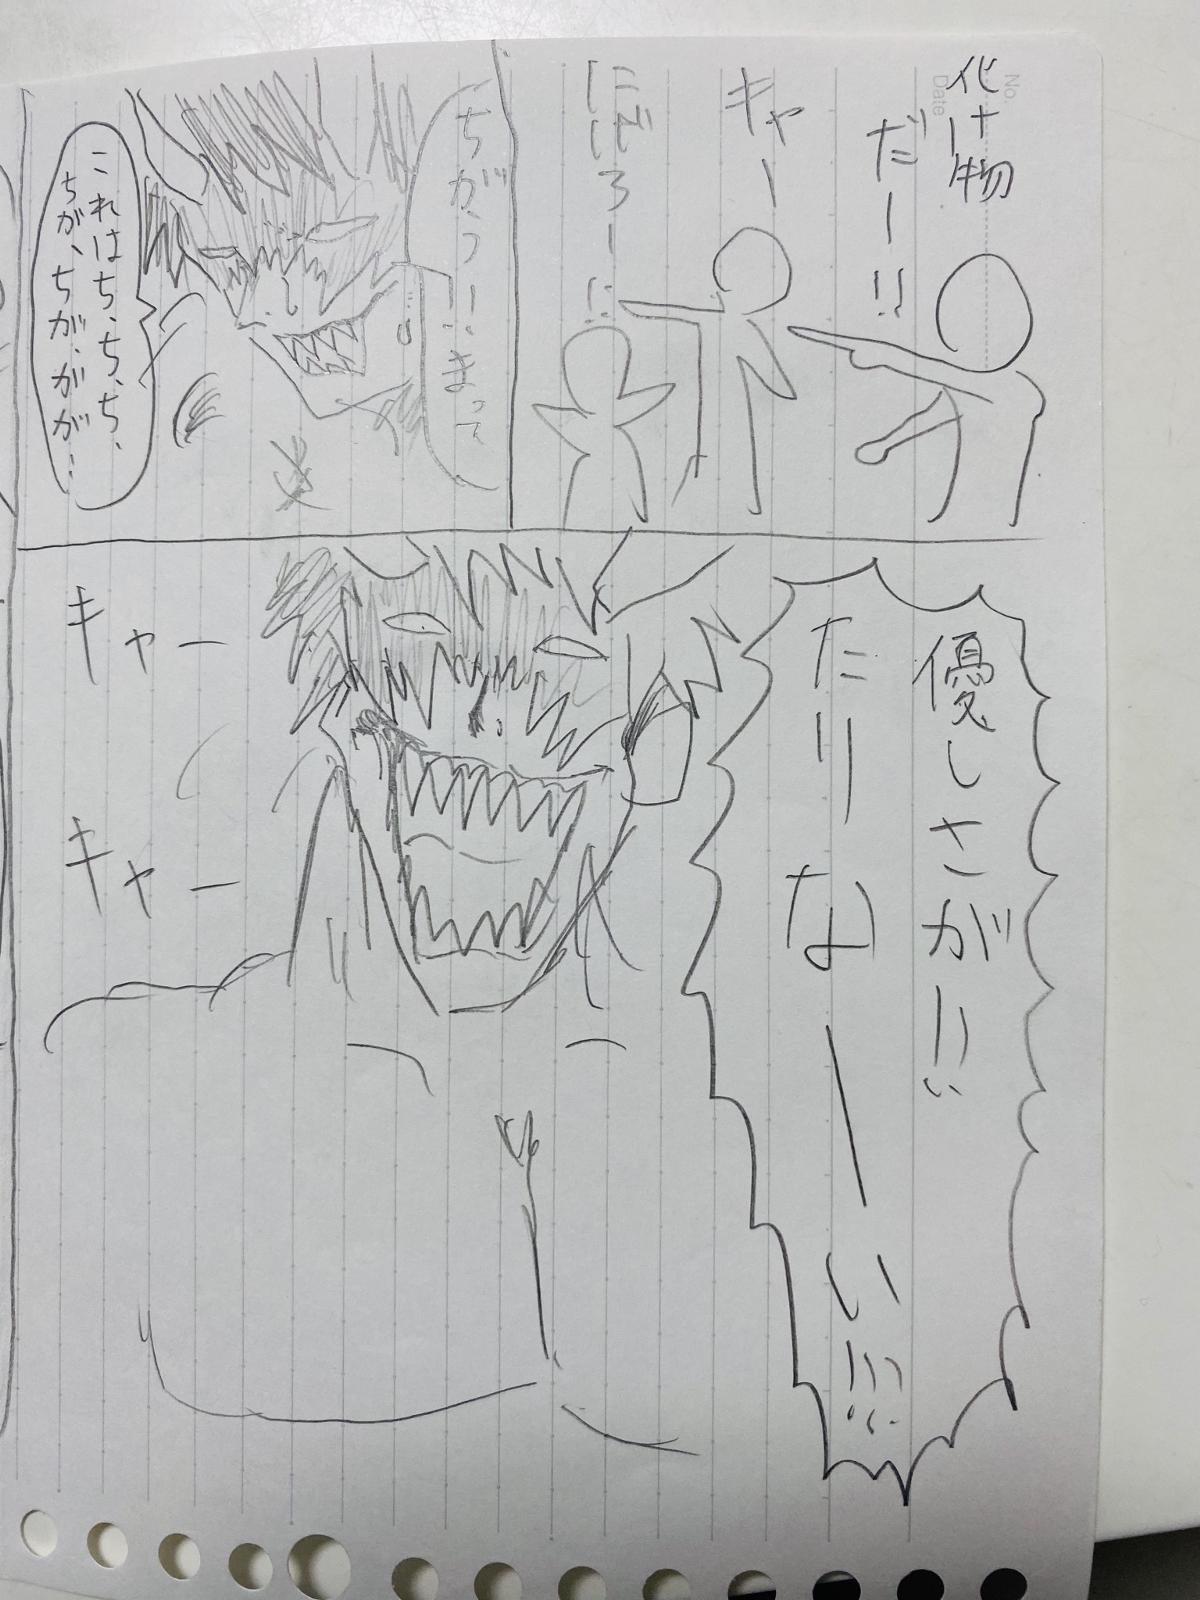 No.
Date
化け物
だー!!
キャー
にげろー!!
ちがう!!まって
これはち、ち、ち、
ちが、ちが、がが…
優しさが!!
たりなーい!!!
キャー
キャー